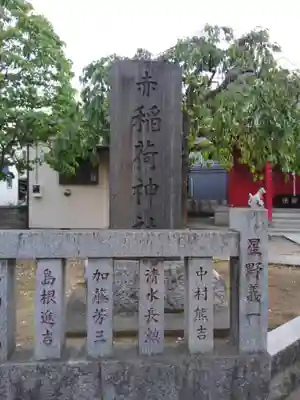 赤稲荷神社
星野義
中村熊吉
清水長勲
加藤芳三
島根進吉